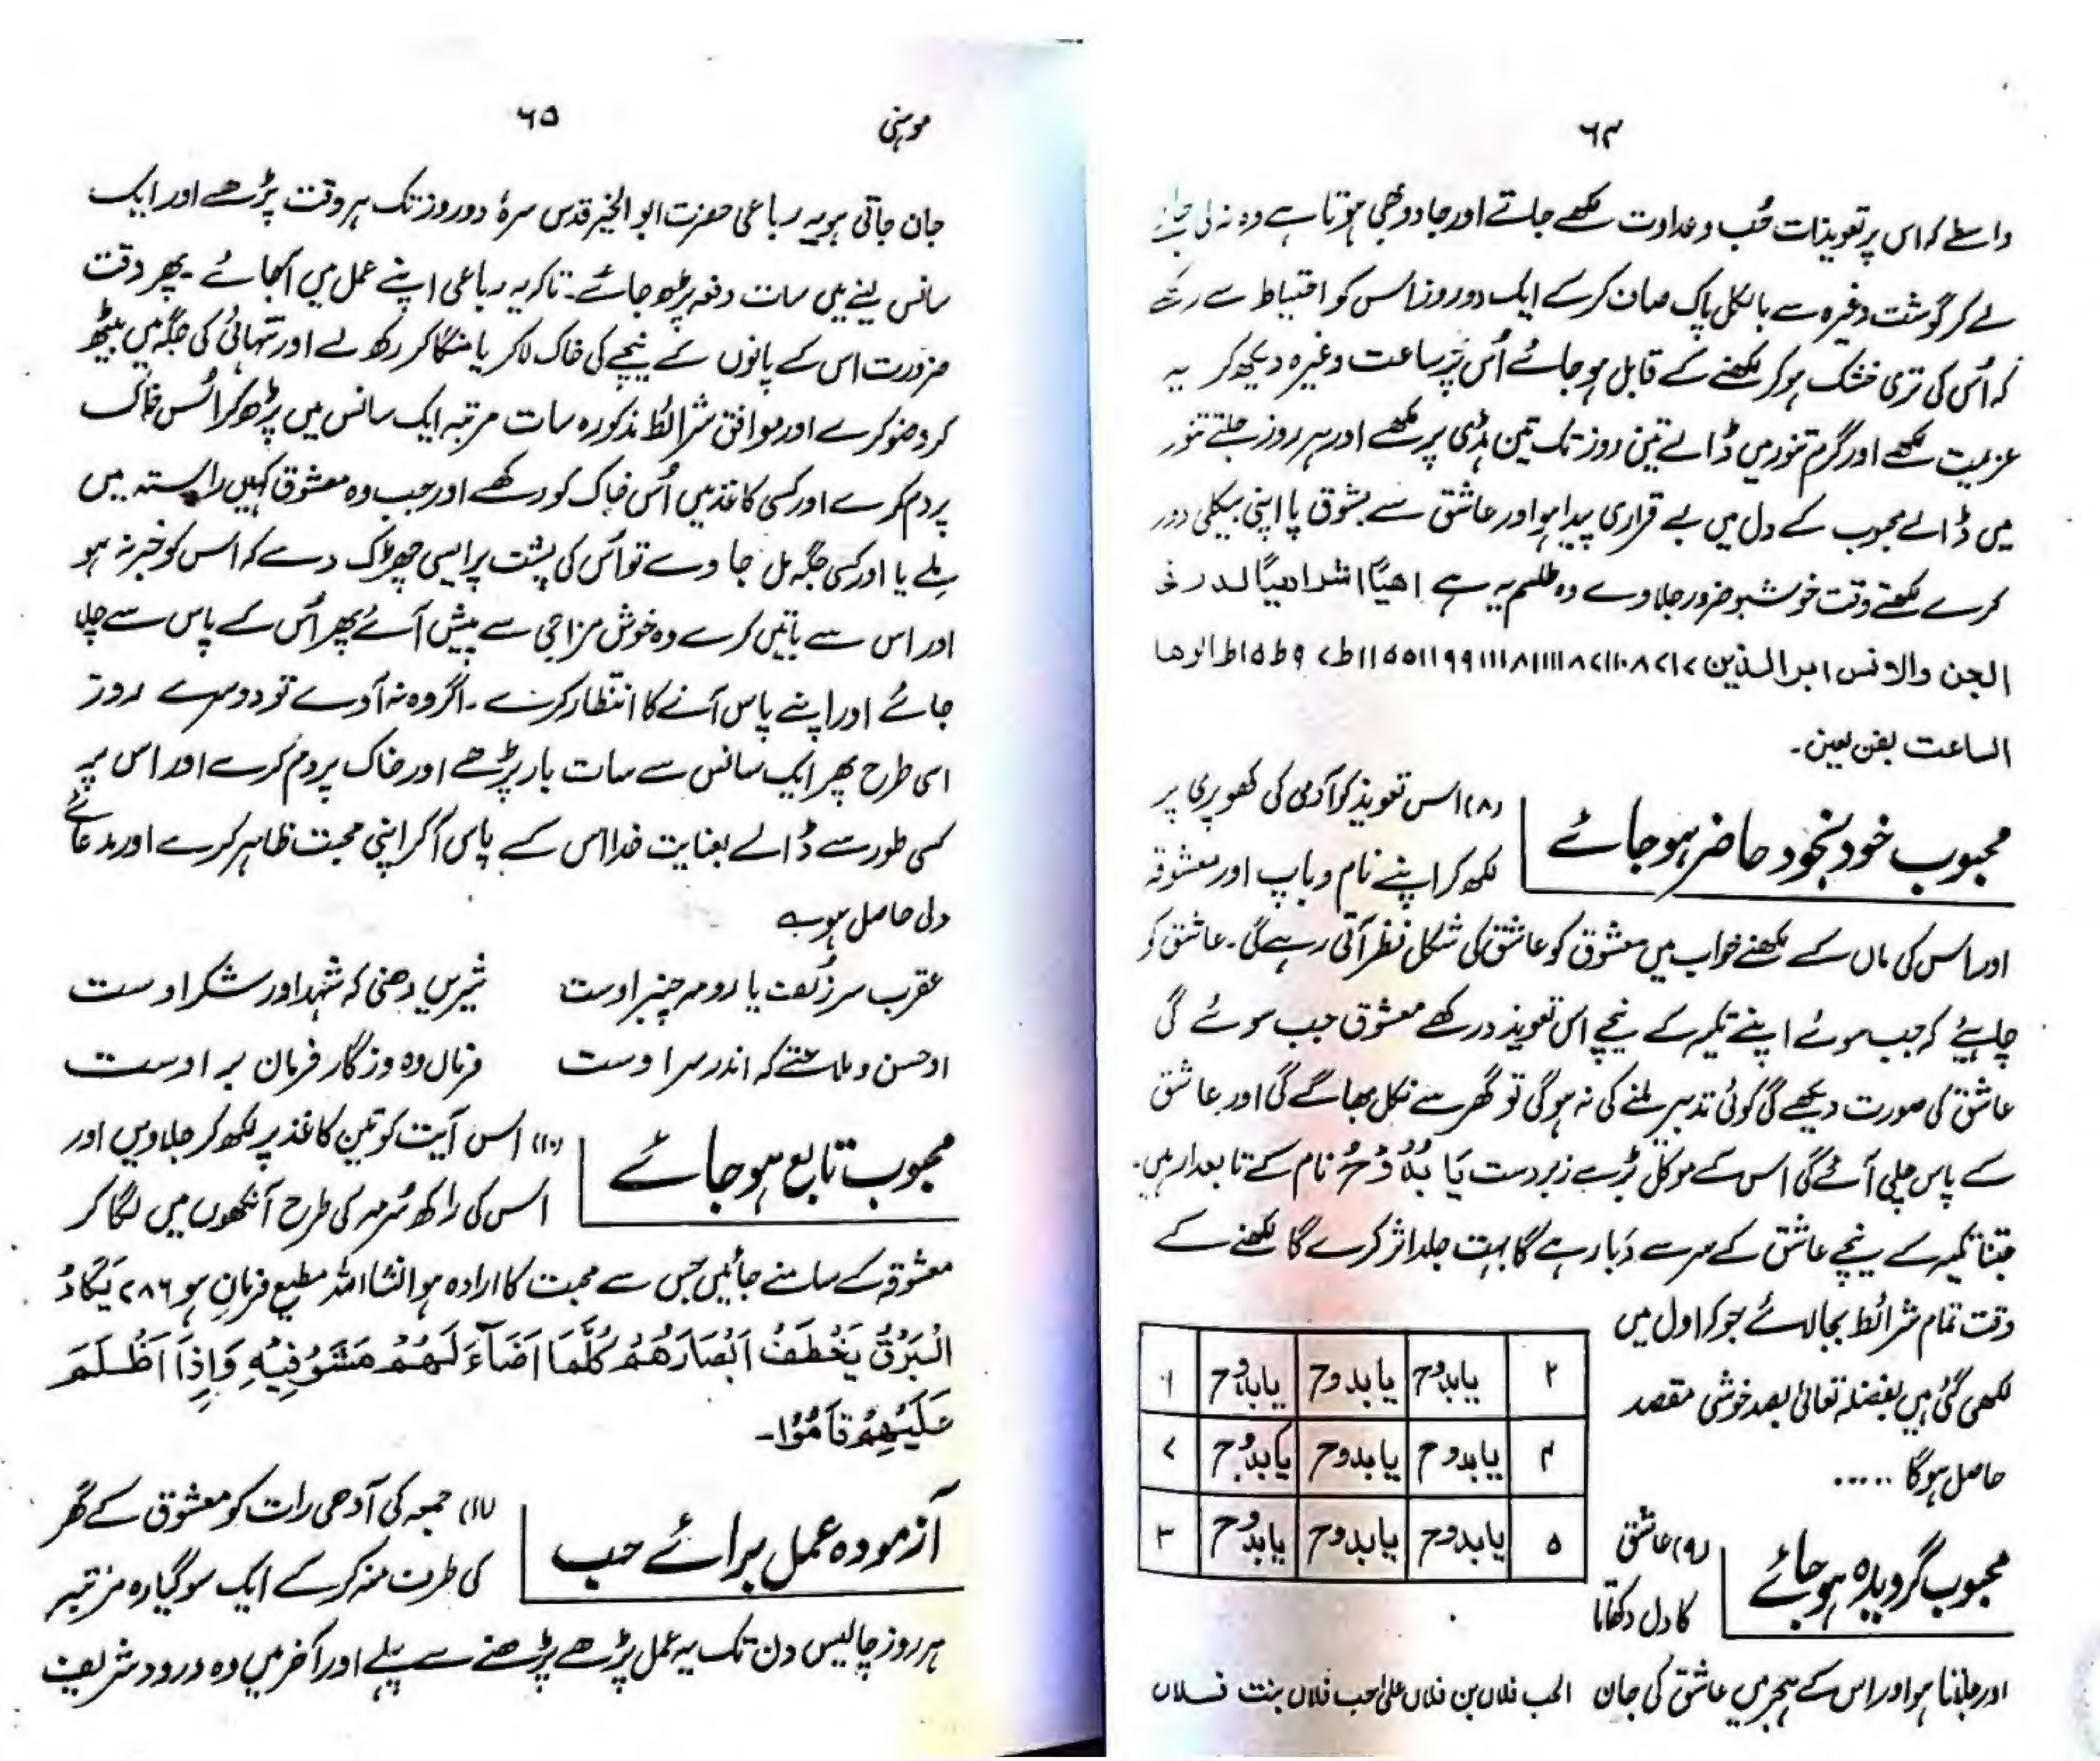 ۶۴
واسطے کہ اس پر تعویذات حُب وعداوت لکھے جاتے اور جادو بھی ہوتا ہے وہ نہ لی جائے
لے کر گوشت وغیرہ سے بالکل پاک صاف کر کے ایک دو روز اس کو احتیاط سے رکھے
کہ اُس کی تری خشک ہو کر لکھنے کے قابل ہو جائے اُس پر ساعت وغیرہ دیکھ کر یہ
عزیمت لکھے اور گرم تنور میں ڈالے تین روز تک تین ہڈی پر لکھے اور ہر روز جلتے تنور
میں ڈالے محبوب کے دل میں بے قراری پیدا ہو اور عاشق سے بشوق پا اپنی بیکلی دور
کرے لکھتے وقت خوشبو ضرور جلاوے وہ طلسم یہ ہے اھیًّا اشراھیًّا
الجن والانس ابر الذین
الساعت بفن بعین۔
محبوب خود بخود حاضر ہو جائے
(۸) اس تعویذ کو آدمی کی کھوپری پر
لکھ کر اپنے نام و باپ اور معشوقہ
اور اس کی ماں کے لکھنے خواب میں معشوق کو عاشق کی شکل نظر آتی رہے گی۔ عاشق کو
چاہیئے کہ جب سوئے اپنے تکیہ کے نیچے اس تعویذ در رکھے معشوق جب سوئے گی
عاشق کی صورت دیکھے گی کوئی تدبیر ملنے کی نہ ہوگی تو گھر سے نکل بھاگے گی اور عاشق
کے پاس چلی آئے گی اس کے موکل بڑے زبردست یَا بُدُّوْحُ نام کے تابعدار ہیں۔
جتنا تکیہ کے نیچے عاشق کے سر سے دَبا رہے گا بہت جلد اثر کرے گا لکھنے کے
وقت تمام شرائط بجا لائے جو کہ اول میں
لکھی گئی ہیں بفضلہ تعالیٰ بصد خوشی مقصد
حاصل ہوگا .....
۲ یابدوح یابدوح یابدوح ۱
۴ یابدوح یابدوح یابدوح ۷
۵ یابدوح یابدوح یابدوح ۳
محبوب گرویدہ ہو جائے
(۹) عاشق
کا دل دکھاتا
اور جلاتا ہو اور اس کے ہجر میں عاشق کی جان الحب فلاں بن فلاں علیٰ حب فلاں بنت فسلاں
موہنی ۶۵
جان جاتی ہو یہ رباعی حضرت ابو الخیر قدس سرہٗ دو روز تک ہر وقت پڑھے اور ایک
سانس لینے میں سات دفعہ پڑھ جائے۔ تاکہ یہ رباعی اپنے عمل میں آ جائے۔ پھر وقت
ضرورت اس کے پانوں کے نیچے کی خاک لاکر یا منگا کر رکھ لے اور تنہائی کی جگہ میں بیٹھ
کر وضو کرے اور موافق شرائط مذکورہ سات مرتبہ ایک سانس میں پڑھ کر اُس خاک
پر دم کرے اور کسی کاغذ میں اُس خاک کو رکھے اور جب وہ معشوق کہیں راستہ میں
ملے یا اور کسی جگہ مل جاوے تو اُس کی پشت پر ایسی چھڑک دے کہ اس کو خبر نہ ہو
اور اس سے باتیں کرے وہ خوش مزاجی سے پیش آئے پھر اُس کے پاس سے چلا
جائے اور اپنے پاس آنے کا انتظار کرے۔ اگر وہ نہ آوے تو دوسرے روز
اسی طرح پھر ایک سانس سے سات بار پڑھے اور خاک پر دم کرے اور اس پر
کسی طور سے ڈالے بعنایت خدا اس کے پاس آ کر اپنی محبت ظاہر کرے اور مدعائے
دلی حاصل ہووے
عقرب سر زُلف یا رومہ چنبر اوست شیریں دھنی کہ شہد اور شکر اوست
اوحسن و ملاحتے کہ اندر سر اوست فرماں دہ وزگار فرمان بر اوست
محبوب تابع ہو جائے
(۱۰) اس آیت کو تین کاغذ پر لکھ کر جلاویں اور
اس کی راکھ سُرمہ کی طرح آنکھوں میں لگا کر
معشوقہ کے سامنے جائیں جس سے محبت کا ارادہ ہو انشااللہ مطیع فرمان ہو ۷۸۶ یَکَادُ
الْبَرْقُ یَخْطَفُ اَبْصَارَھُمْ کُلَّمَا اَضَآءَ لَھُمْ مَشَوْ فِیْہِ وَاِذَا اَظْلَمَ
عَلَیْھِمْ قَامُوْا۔
آزمودہ عمل برائے حب
(۱۱) جمعہ کی آدھی رات کو معشوق کے گھر
کی طرف منہ کر کے ایک سو گیارہ مرتبہ
ہر روز چالیس دن تک یہ عمل پڑھے پڑھنے سے پہلے اور آخر میں دہ درود شریف